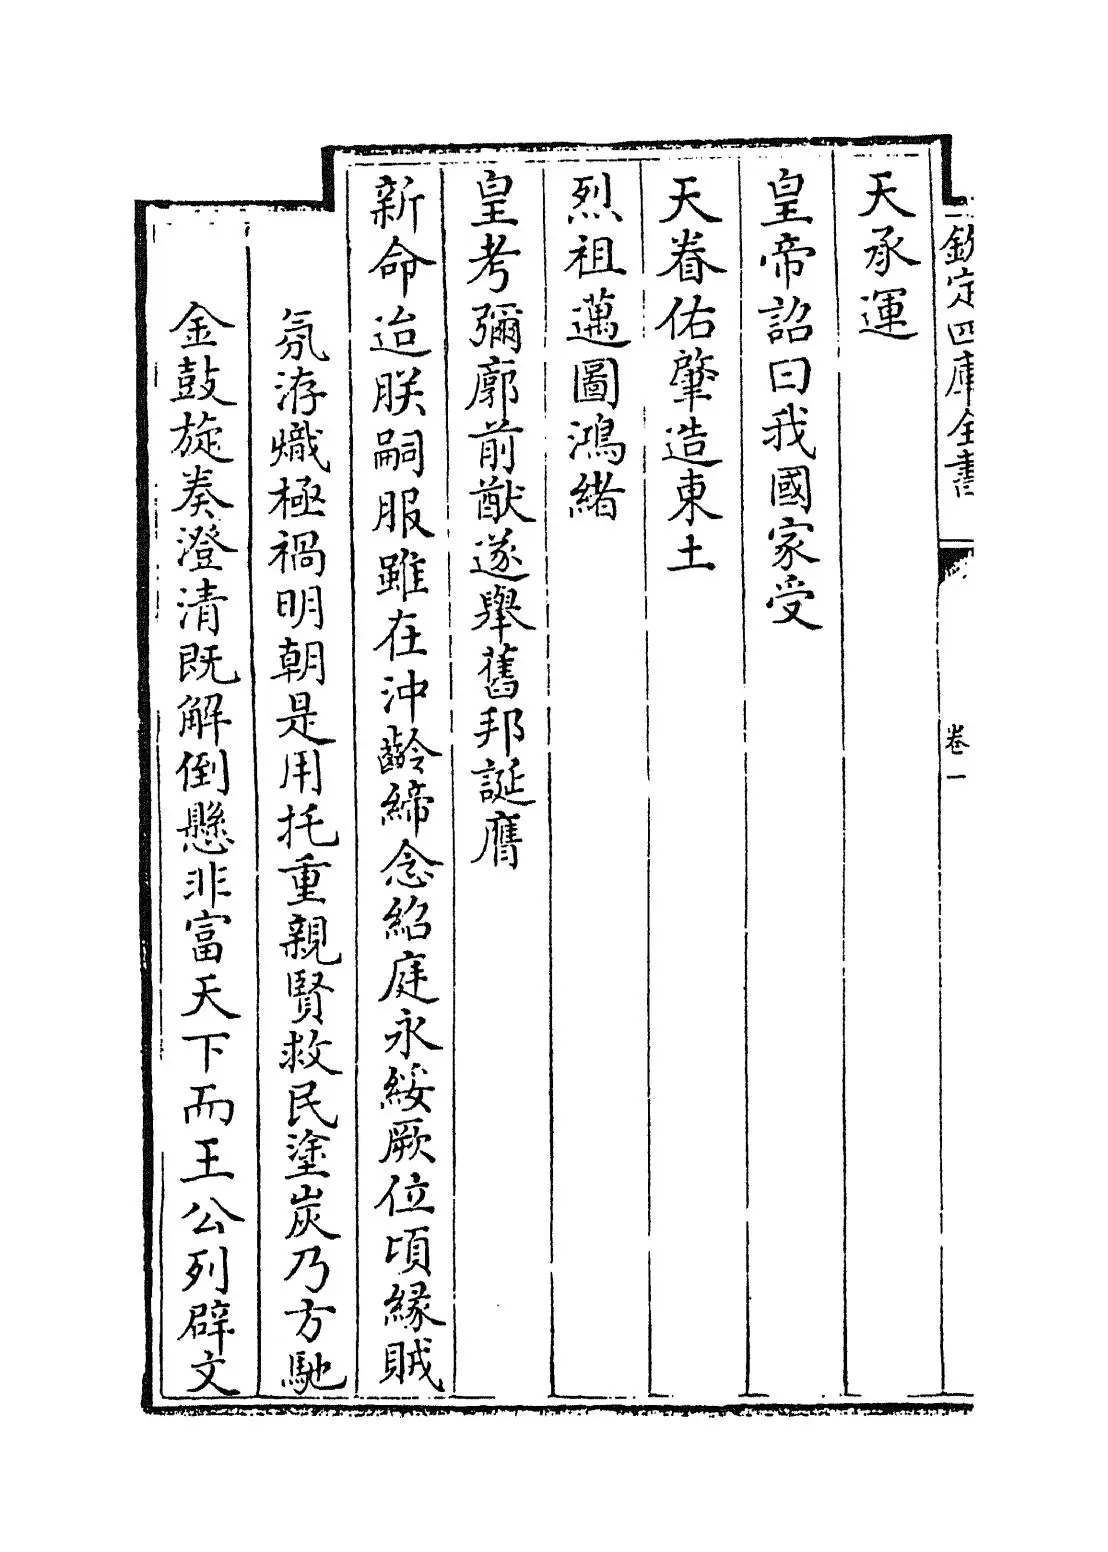 欽定四庫全書
卷一
天承運
皇帝詔曰我國家受
天眷佑肇造東土
烈祖邁圖鴻緒
皇考彌廓前猷遂舉舊邦誕膺
新命迨朕嗣服雖在沖齡締念紹庭永綏厥位頃緣賊
氛洊熾極禍明朝是用托重親賢救民塗炭乃方馳
金鼓旋奏澄清既解倒懸非富天下而王公列辟文